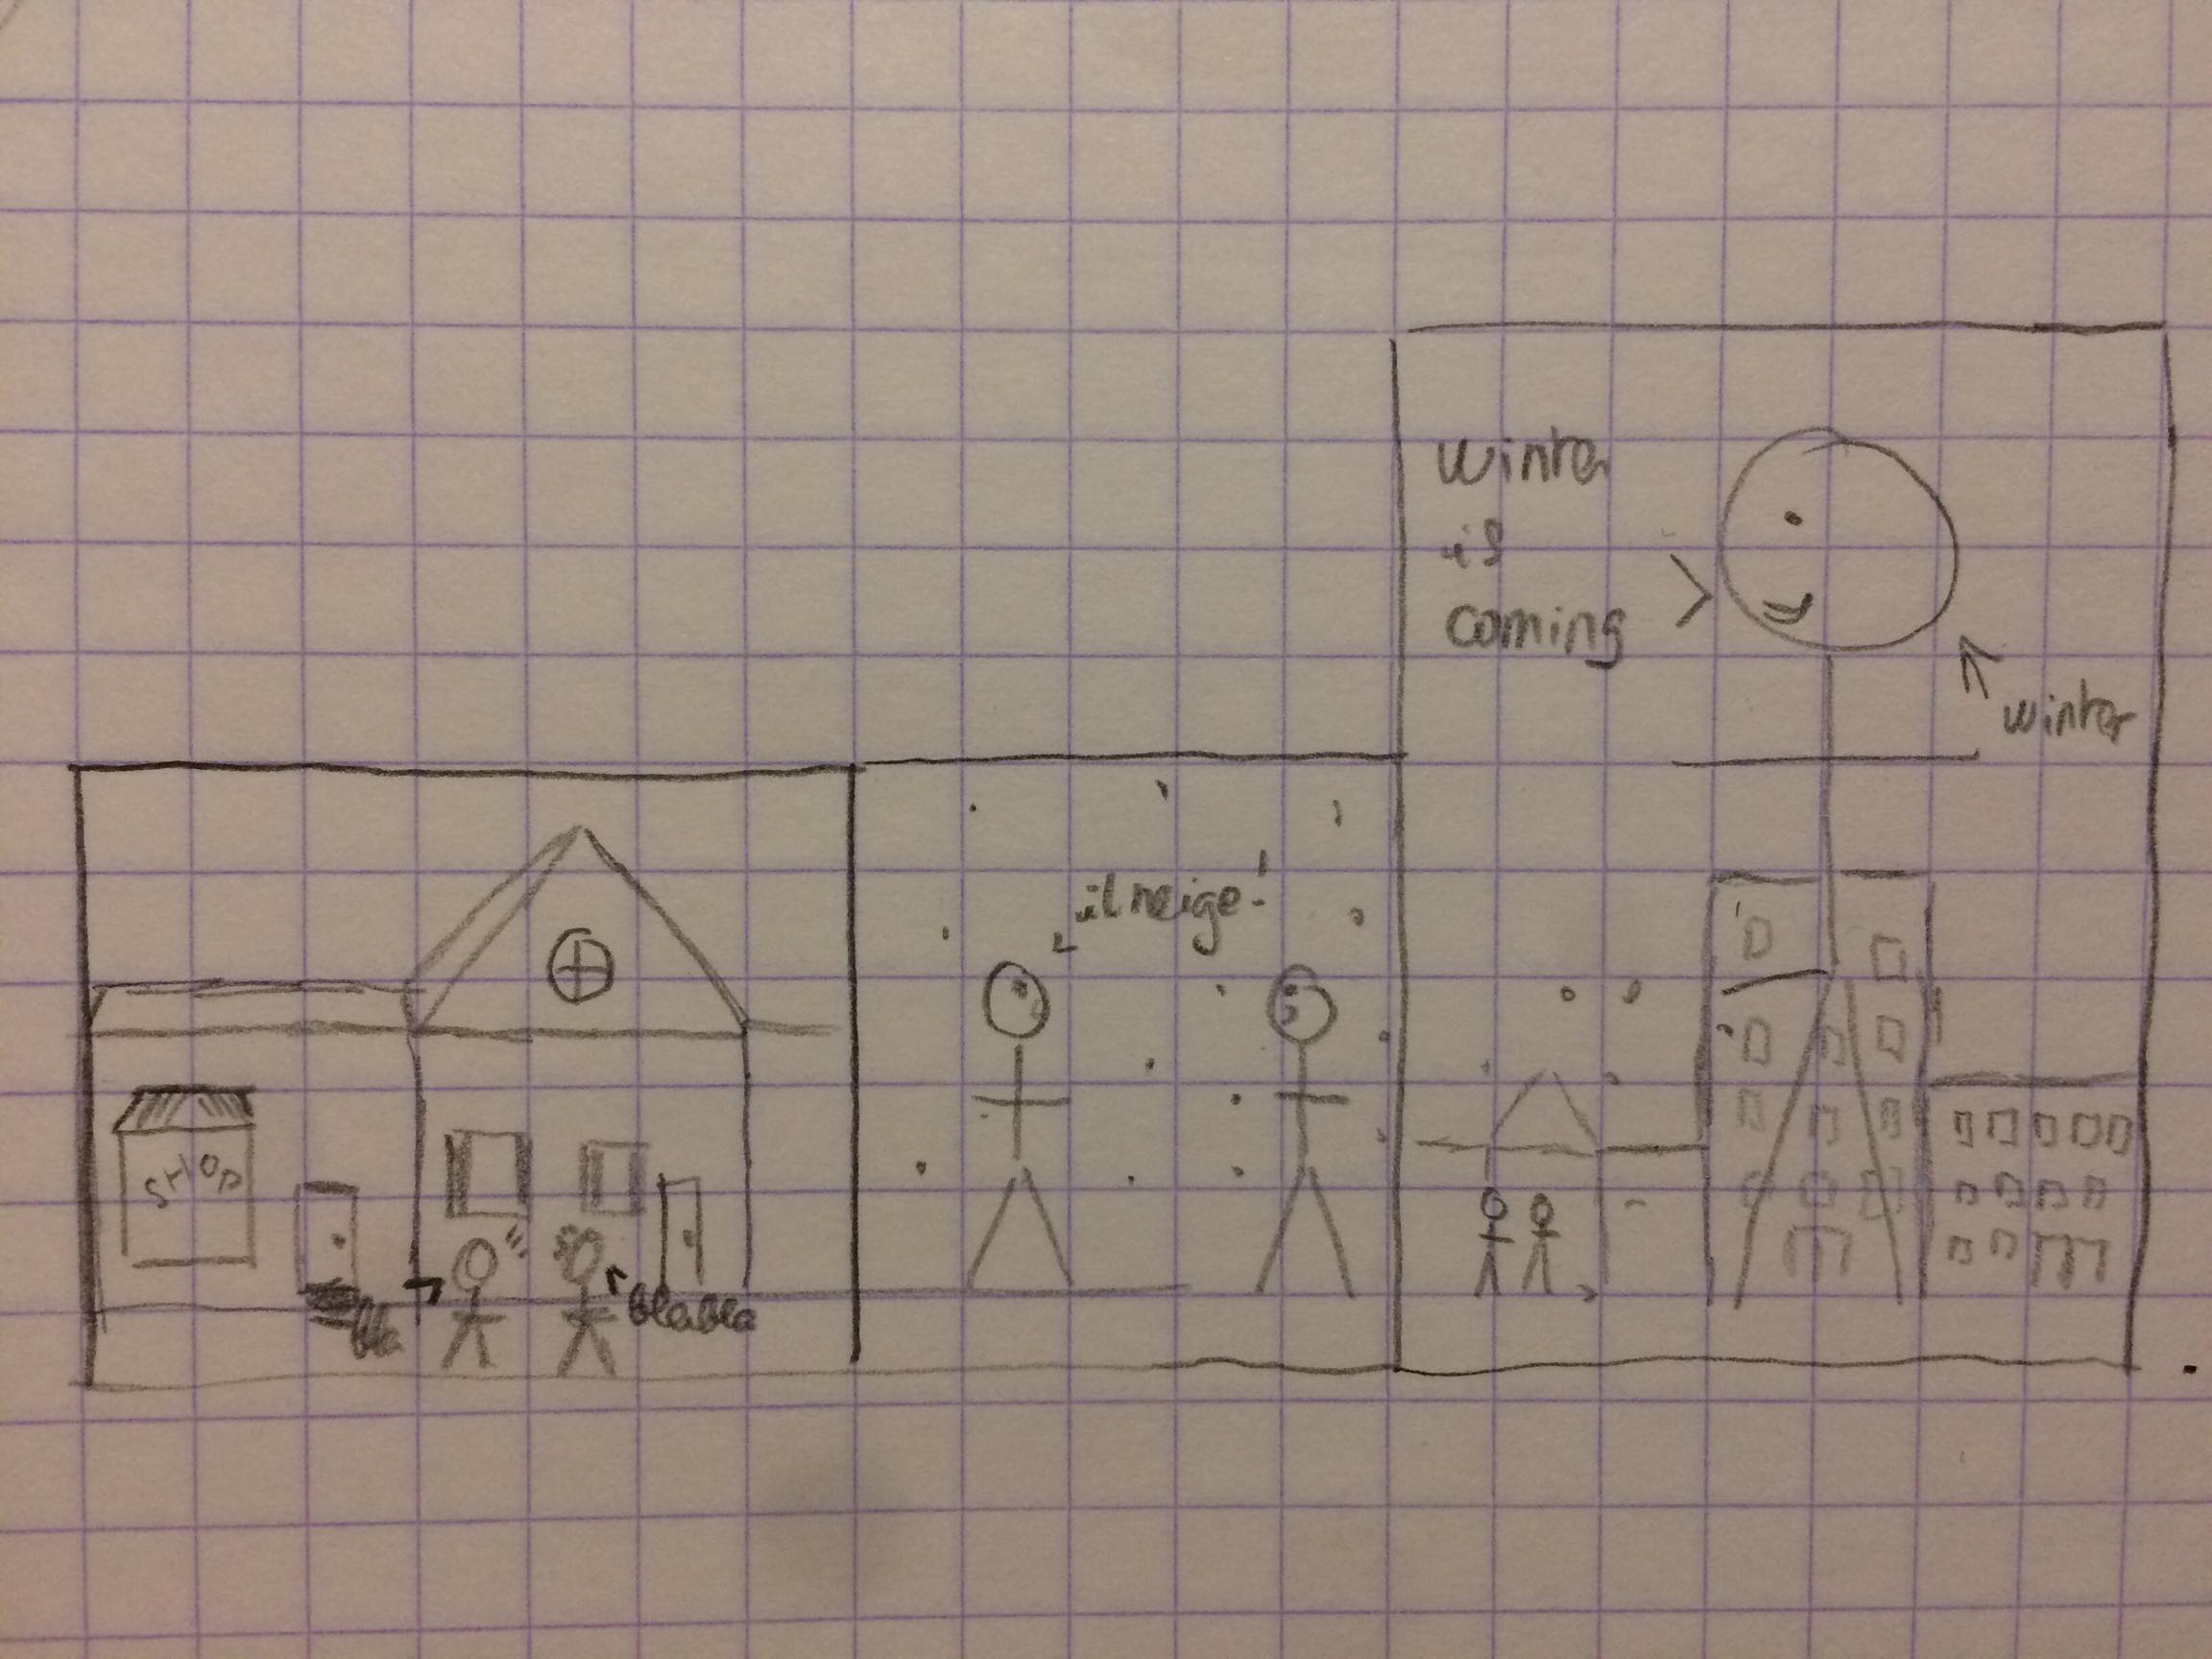 SHOP
bla
blabla
il neige!
Winter
is
coming
winter